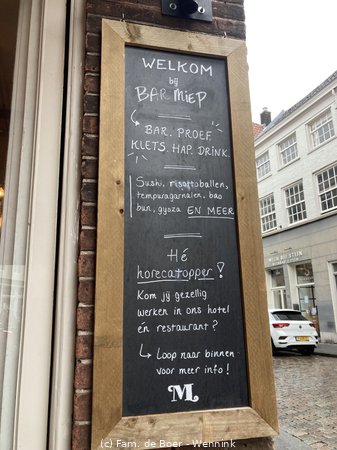 WELKOM
bij
BAR MIEP
BAR. PROEF.
KLETS. HAP. DRINK.
Sushi, risottoballen,
tempuragarnalen, bao
bun, gyoza EN MEER
Hé
horecatopper!
Kom jij gezellig
werken in ons hotel
én restaurant?
Loop naar binnen
voor meer info!
M.
(c) Fam. de Boer - Wennink